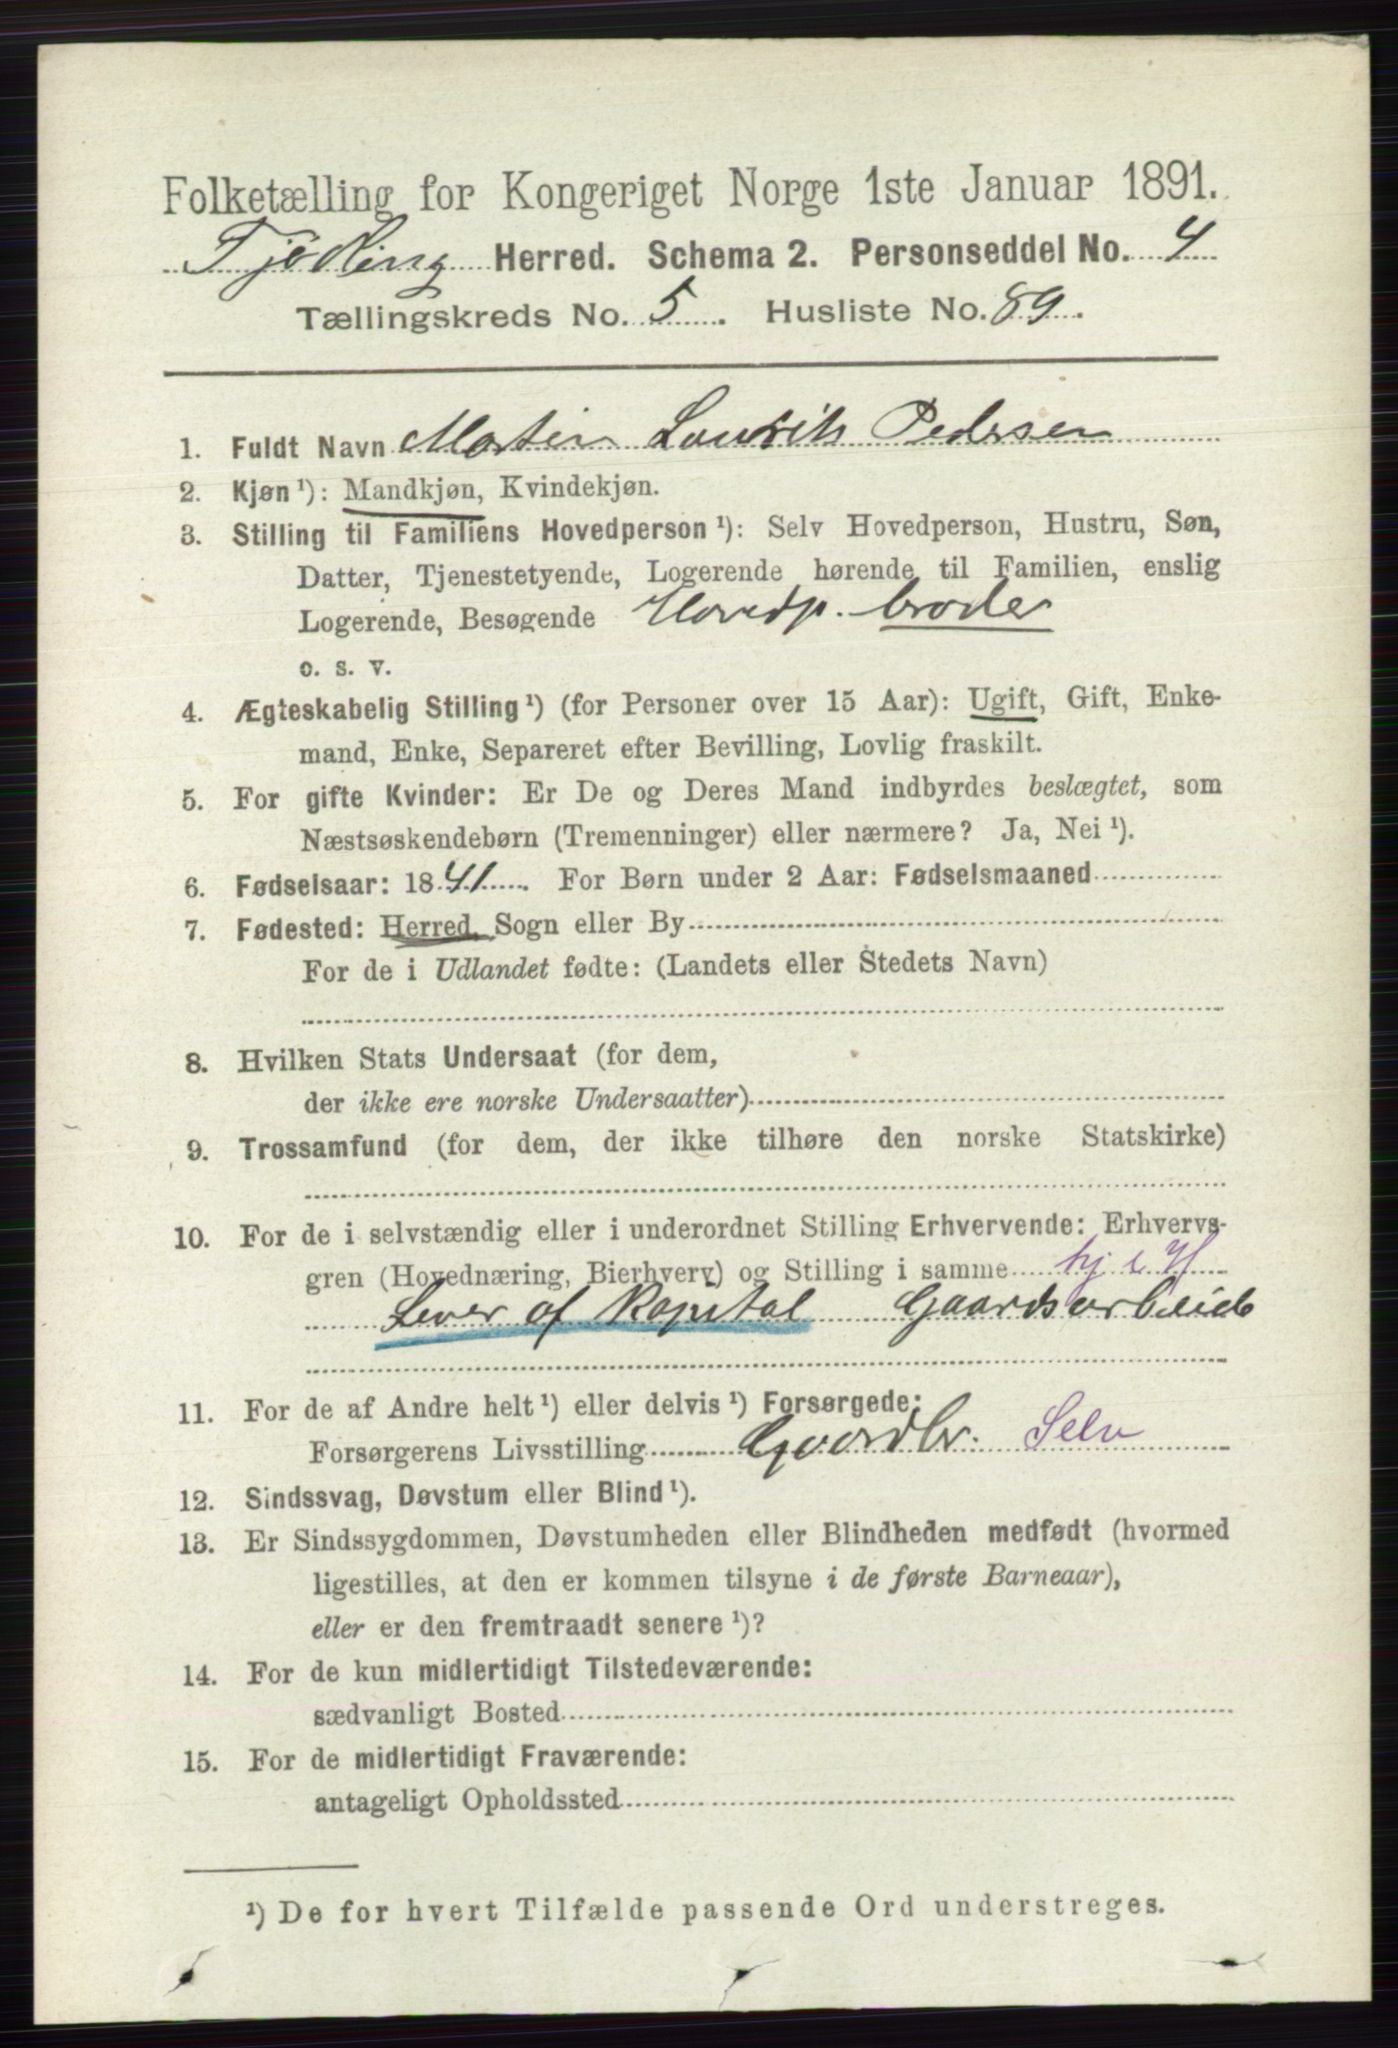 Folketælling for Kongeriget Norge 1ste Januar 1891.
Tjølling Herred. Schema 2. Personseddel No. 4
Tællingskreds No. 5. Husliste No. 89.
1. Fuldt Navn Martin Laurits Pedersen
2. Kjøn¹): Mandkjøn, Kvindekjøn.
3. Stilling til Familiens Hovedperson¹): Selv Hovedperson, Hustru, Søn,
Datter, Tjenestetyende, Logerende hørende til Familien, enslig
Logerende, Besøgende Hovedp. broder
o. s. v.
4. Ægteskabelig Stilling¹) (for Personer over 15 Aar): Ugift, Gift, Enke-
mand, Enke, Separeret efter Bevilling, Lovlig fraskilt.
5. For gifte Kvinder: Er De og Deres Mand indbyrdes beslægtet, som
Næstsøskendebørn (Tremenninger) eller nærmere? Ja, Nei¹).
6. Fødselsaar: 1841. For Børn under 2 Aar: Fødselsmaaned
7. Fødested: Herred, Sogn eller By
For de i Udlandet fødte: (Landets eller Stedets Navn)
8. Hvilken Stats Undersaat (for dem,
der ikke ere norske Undersaatter)
9. Trossamfund (for dem, der ikke tilhøre den norske Statskirke)
10. For de i selvstændig eller i underordnet Stilling Erhvervende: Erhvervs-
gren (Hovednæring, Bierhverv) og Stilling i samme hj i H
Lever af Kapital Gaardsarbeide
11. For de af Andre helt¹) eller delvis¹) Forsørgede:
Forsørgerens Livsstilling Gaardbr. Selv
12. Sindssvag, Døvstum eller Blind¹).
13. Er Sindssygdommen, Døvstumheden eller Blindheden medfødt (hvormed
ligestilles, at den er kommen tilsyne i de første Barneaar),
eller er den fremtraadt senere¹)?
14. For de kun midlertidigt Tilstedeværende:
sædvanligt Bosted
15. For de midlertidigt Fraværende:
antageligt Opholdssted
¹) De for hvert Tilfælde passende Ord understreges.